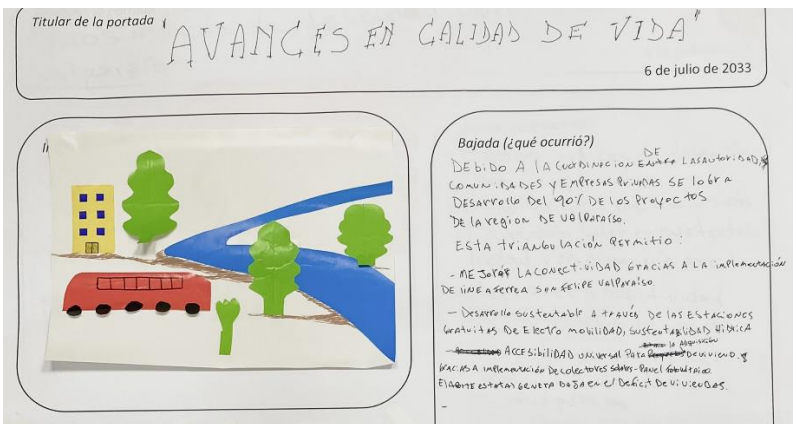 Titular de la portada
"AVANCES EN CALIDAD DE VIDA"
6 de julio de 2033
Bajada (¿qué ocurrió?)
DEbiDO A lA CoorDiNAcion DE LAS AutoriDADES
COMUNiDADES Y EMPRESAS PriVADAS SE loGrA
DESArrollo DEl 90% DE LOS ProyECtos
DE lA rEGion DE VAlPArAíso.
ESTA triANGulAción PErMitio:
- MEJorAr LA CONECTiViDAD GrACiAS A LA iMPlEMENTACión
DE liNEA FErrEA SAN FELiPE VAlPArAiso.
- DESArrollo SuStENtAblE A trAVÉS DE LAS EStACioNES
GrAtuitAS DE ElECtro MobiliDAD, SuStENtAbiliDAD HíDriCA
lA ADquiSición
ACCESibiliDAD uNiVErSAl PArA DE ViViENDA
GrACiAS A iMPlEMENtACión DE ColECtorES SolArES - PANEl FotoVoltAiCo.
El APortE EStAtAl GENErA BAJA EN El DEFiCit DE ViViENDAS.
-